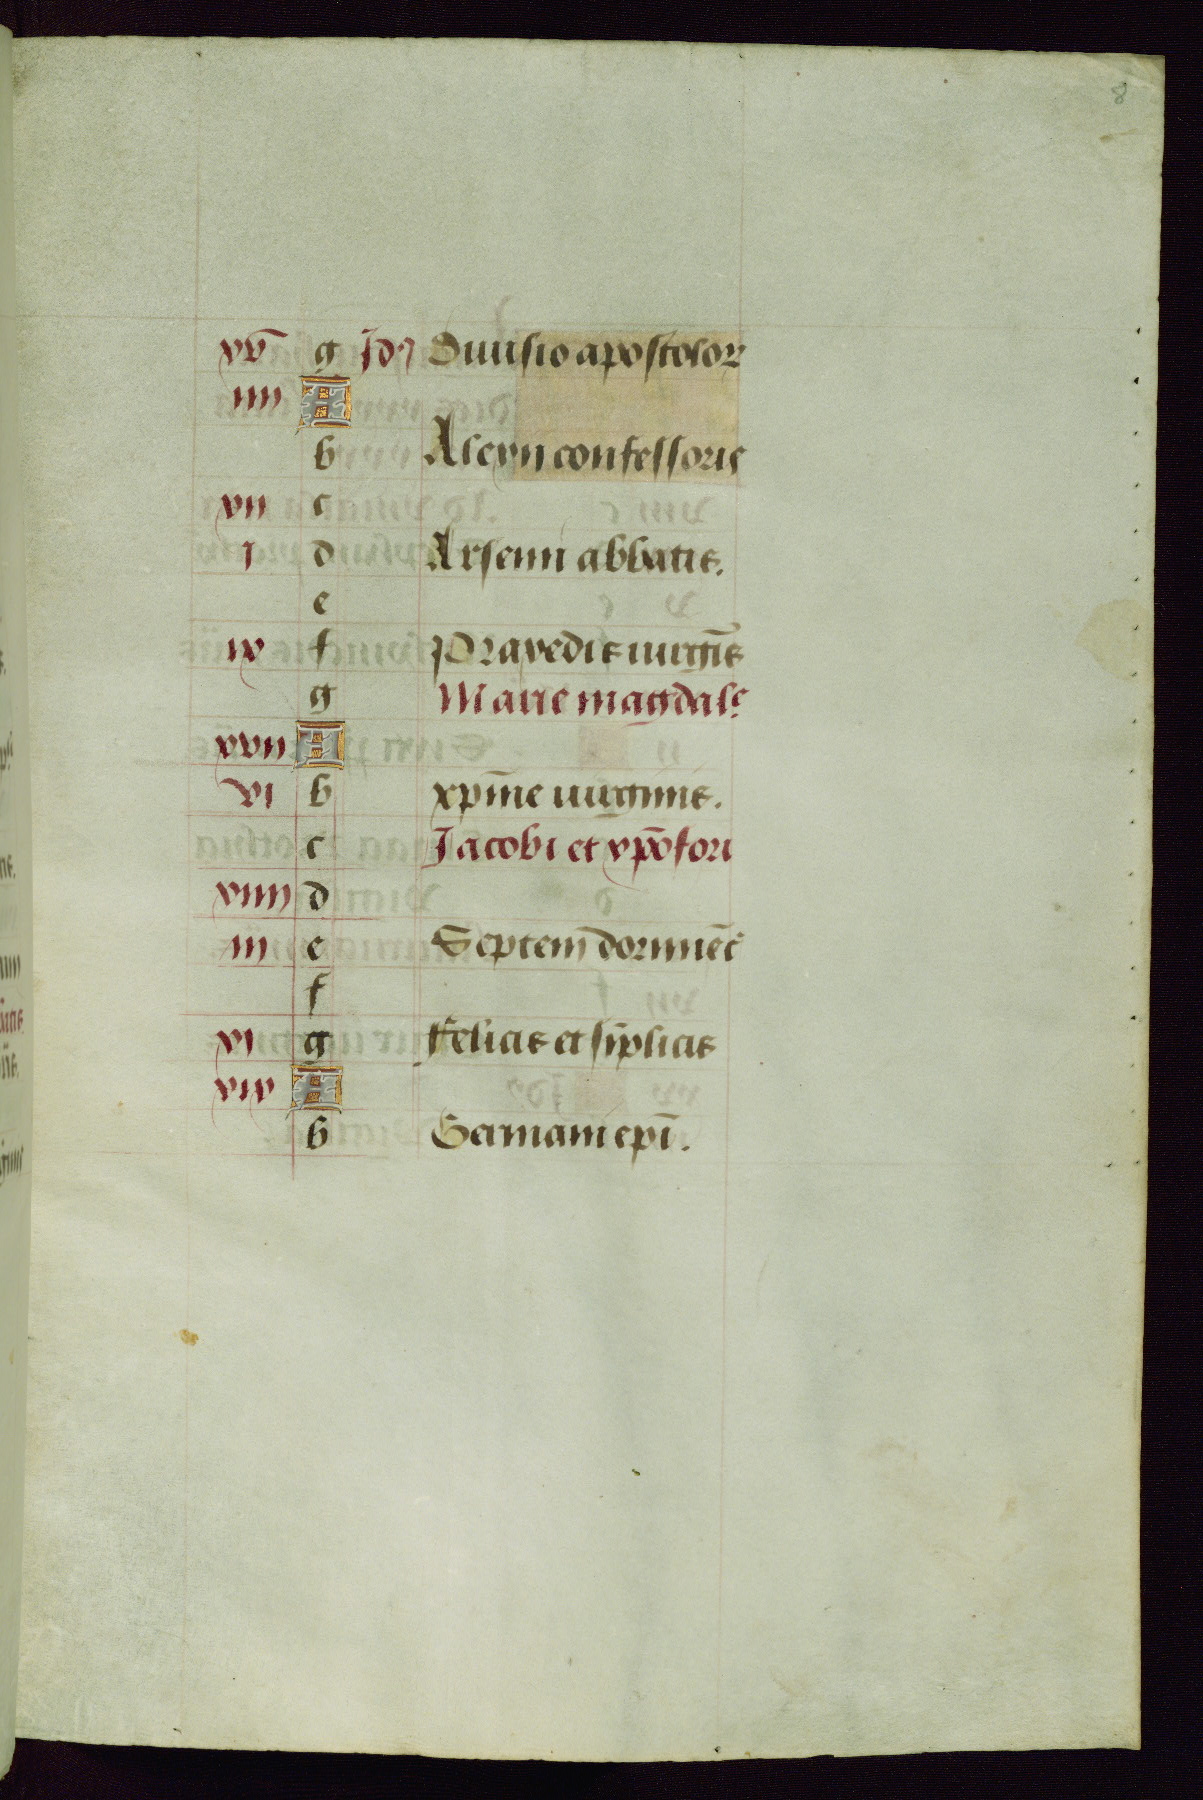 8
xv̄ g Idꝰ Diuisio apostolor
iiii A
b Alexii confessoris
vii c
i d Arsenii abbatis.
e
ix f Praxedis uirgīs
g Marie magdalē
xvii A
vi b xp̄ine uirginis.
c Jacobi et xp̄ofori
xiiii d
iii e Septem dormiēt
f
xi g Felicis et sīplicis
xix A
b Germani ep̄i.